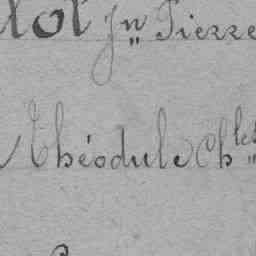 Jn Pierre
Théodule Chles